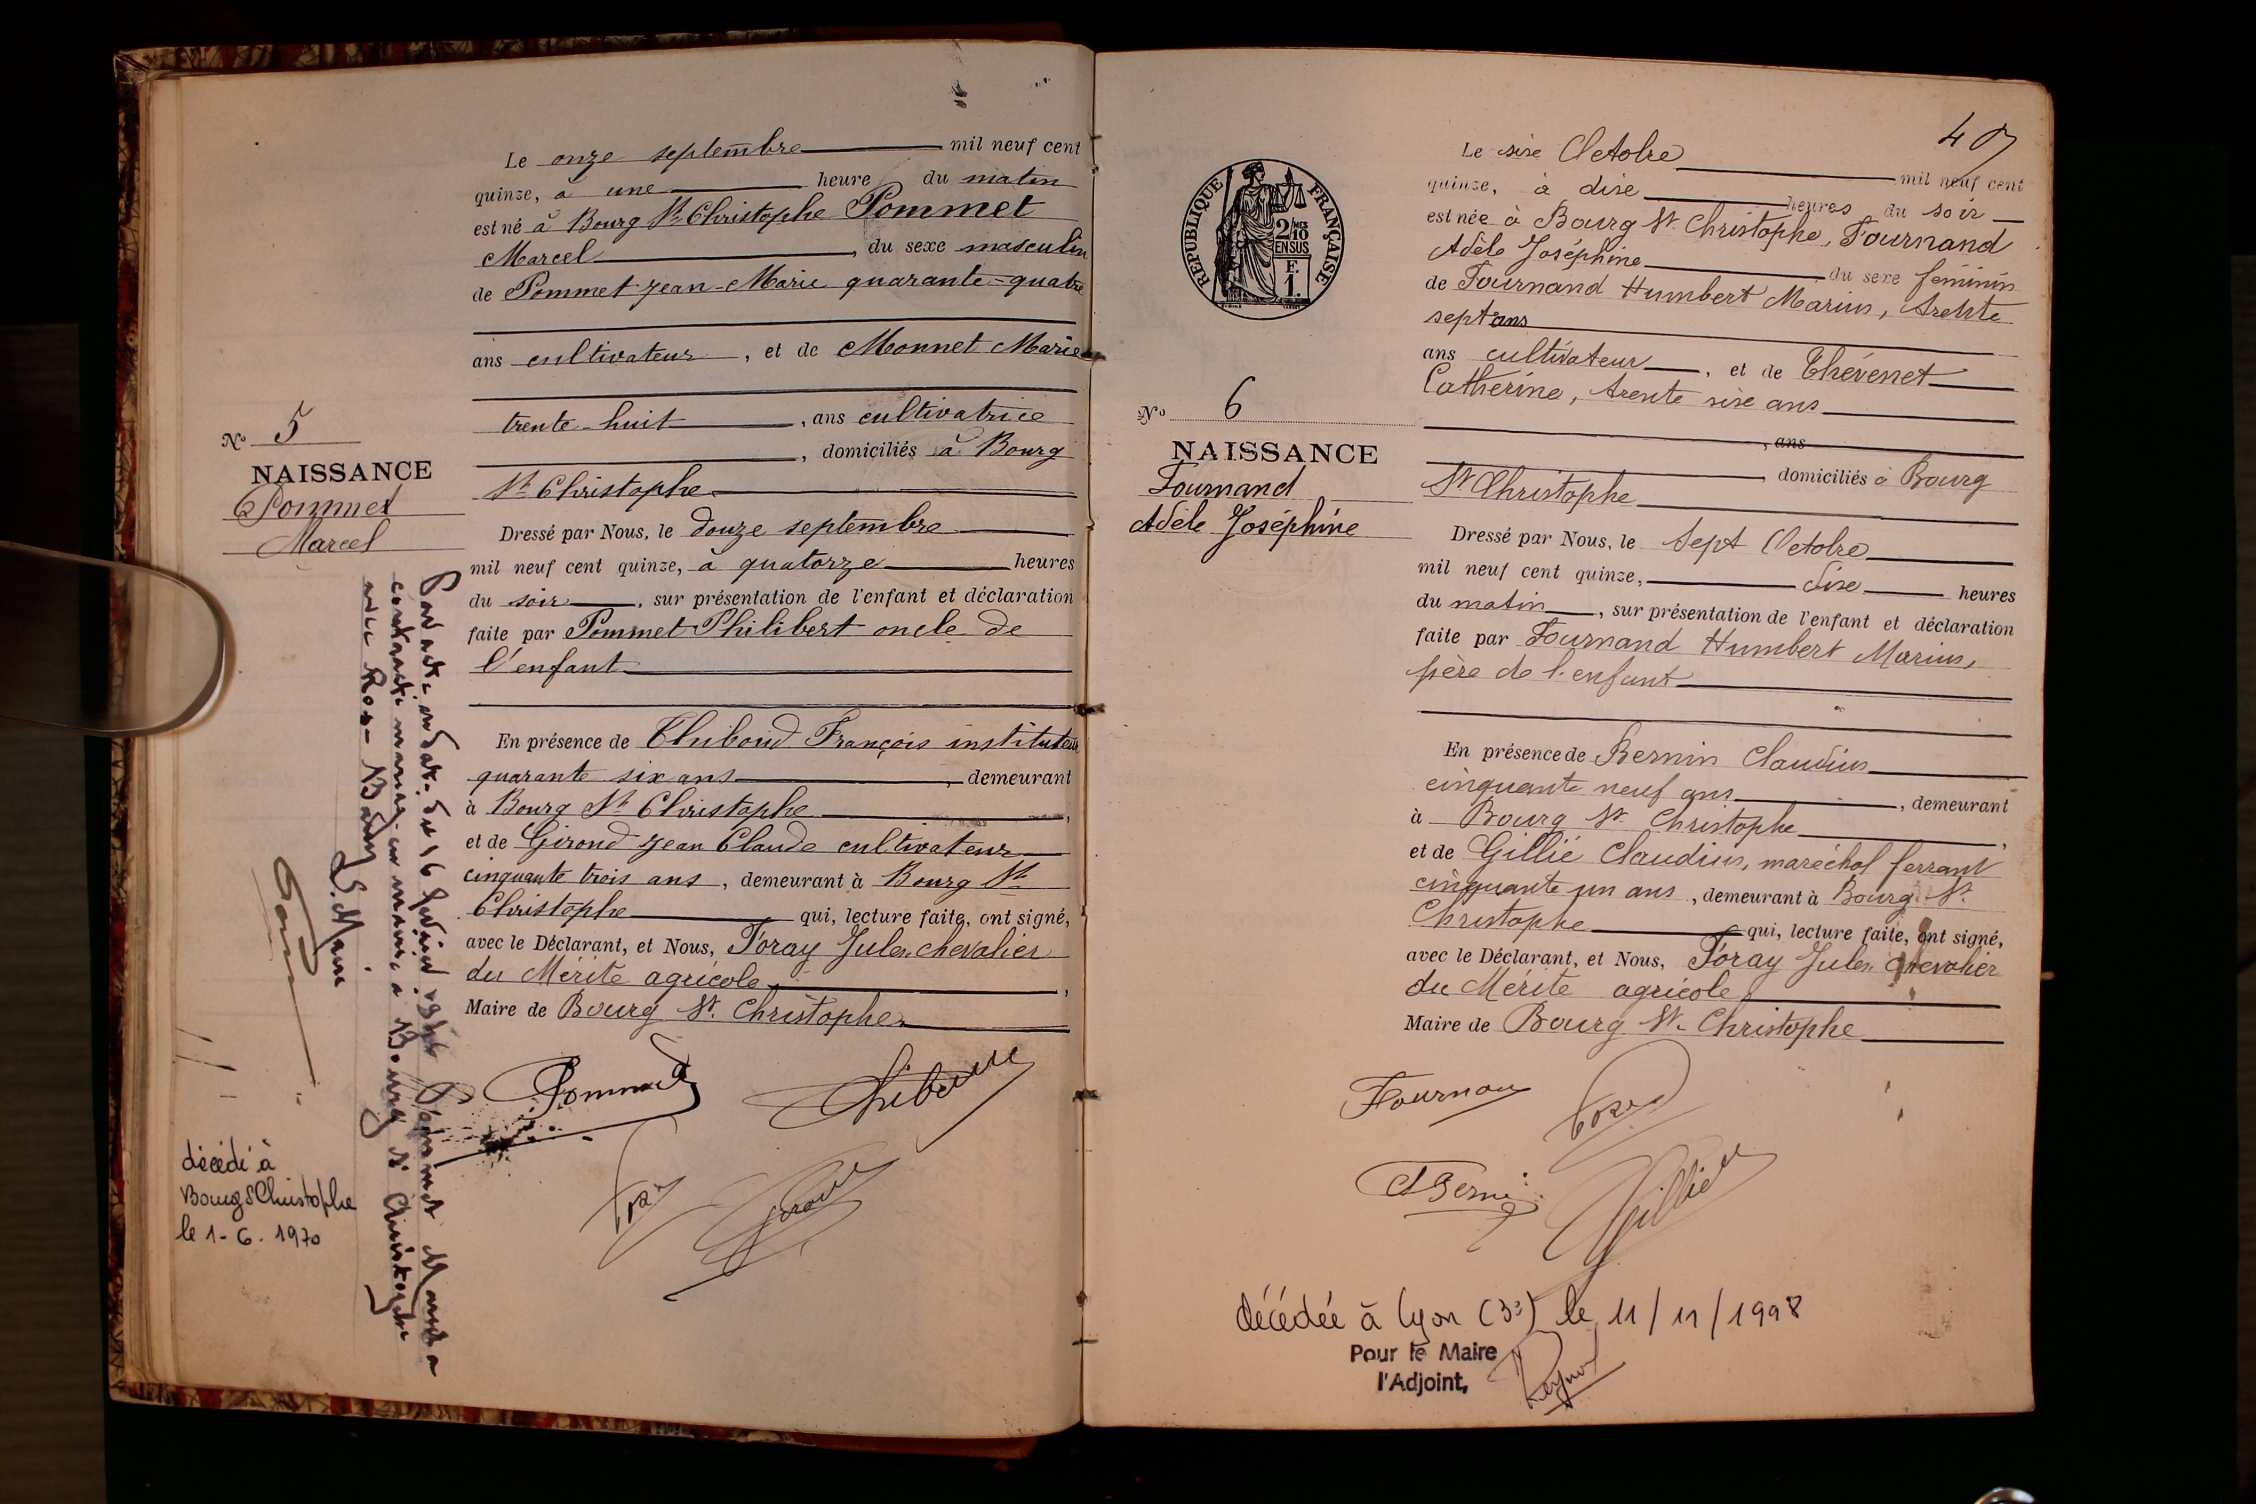 Le onze septembre mil neuf cent
quinze, à une heure du matin
est né à Bourg St Christophe Pommet
Marcel, du sexe masculin
de Pommet Jean-Marie quarante-quatre
ans cultivateur, et de Monnet Marie
trente-huit, ans cultivatrice
, domiciliés à Bourg
St Christophe
No 5
NAISSANCE
Pommet
Marcel
Dressé par Nous, le douze septembre
mil neuf cent quinze, à quatorze heures
du soir, sur présentation de l'enfant et déclaration
faite par Pommet Philibert oncle de
l'enfant
En présence de Thiboud François instituteur
quarante six ans, demeurant
à Bourg St Christophe,
et de Giroud Jean Claude cultivateur
cinquante trois ans, demeurant à Bourg St
Christophe qui, lecture faite, ont signé,
avec le Déclarant, et Nous, Foray Jules chevalier
du Mérite agricole,
Maire de Bourg St. Christophe
Pommet
Par acte en date du 16 Pommet Marcel a
contracté mariage en mairie à Bourg St Christophe
avec
Le Maire
décédé à
Bourg St Christophe
le 1-6.1970
40
REPUBLIQUE FRANÇAISE
2/10
EN SUS
F.
1.
Le sixe Octobre mil neuf cent
quinze, à dixe heures du soir
est née à Bourg St. Christophe, Fournand
Adèle Joséphine du sexe féminin
de Fournand Humbert Marius, trente
sept ans
ans cultivateur, et de Thévenet
Catherine, trente sixe ans
, ans
domiciliés à Bourg
St Christophe
No 6
NAISSANCE
Fournand
Adèle Joséphine
Dressé par Nous, le sept Octobre
mil neuf cent quinze, dixe heures
du matin, sur présentation de l'enfant et déclaration
faite par Fournand Humbert Marius,
père de l'enfant
En présence de Bernin Claudius
cinquante neuf ans, demeurant
à Bourg St. Christophe,
et de Gillié Claudius, maréchal ferrant
cinquante un ans, demeurant à Bourg St.
Christophe qui, lecture faite, ont signé,
avec le Déclarant, et Nous, Foray Jules chevalier
du Mérite agricole
Maire de Bourg St. Christophe
décédée à Lyon (3e) le 11/11/1998
Pour le Maire
l'Adjoint,